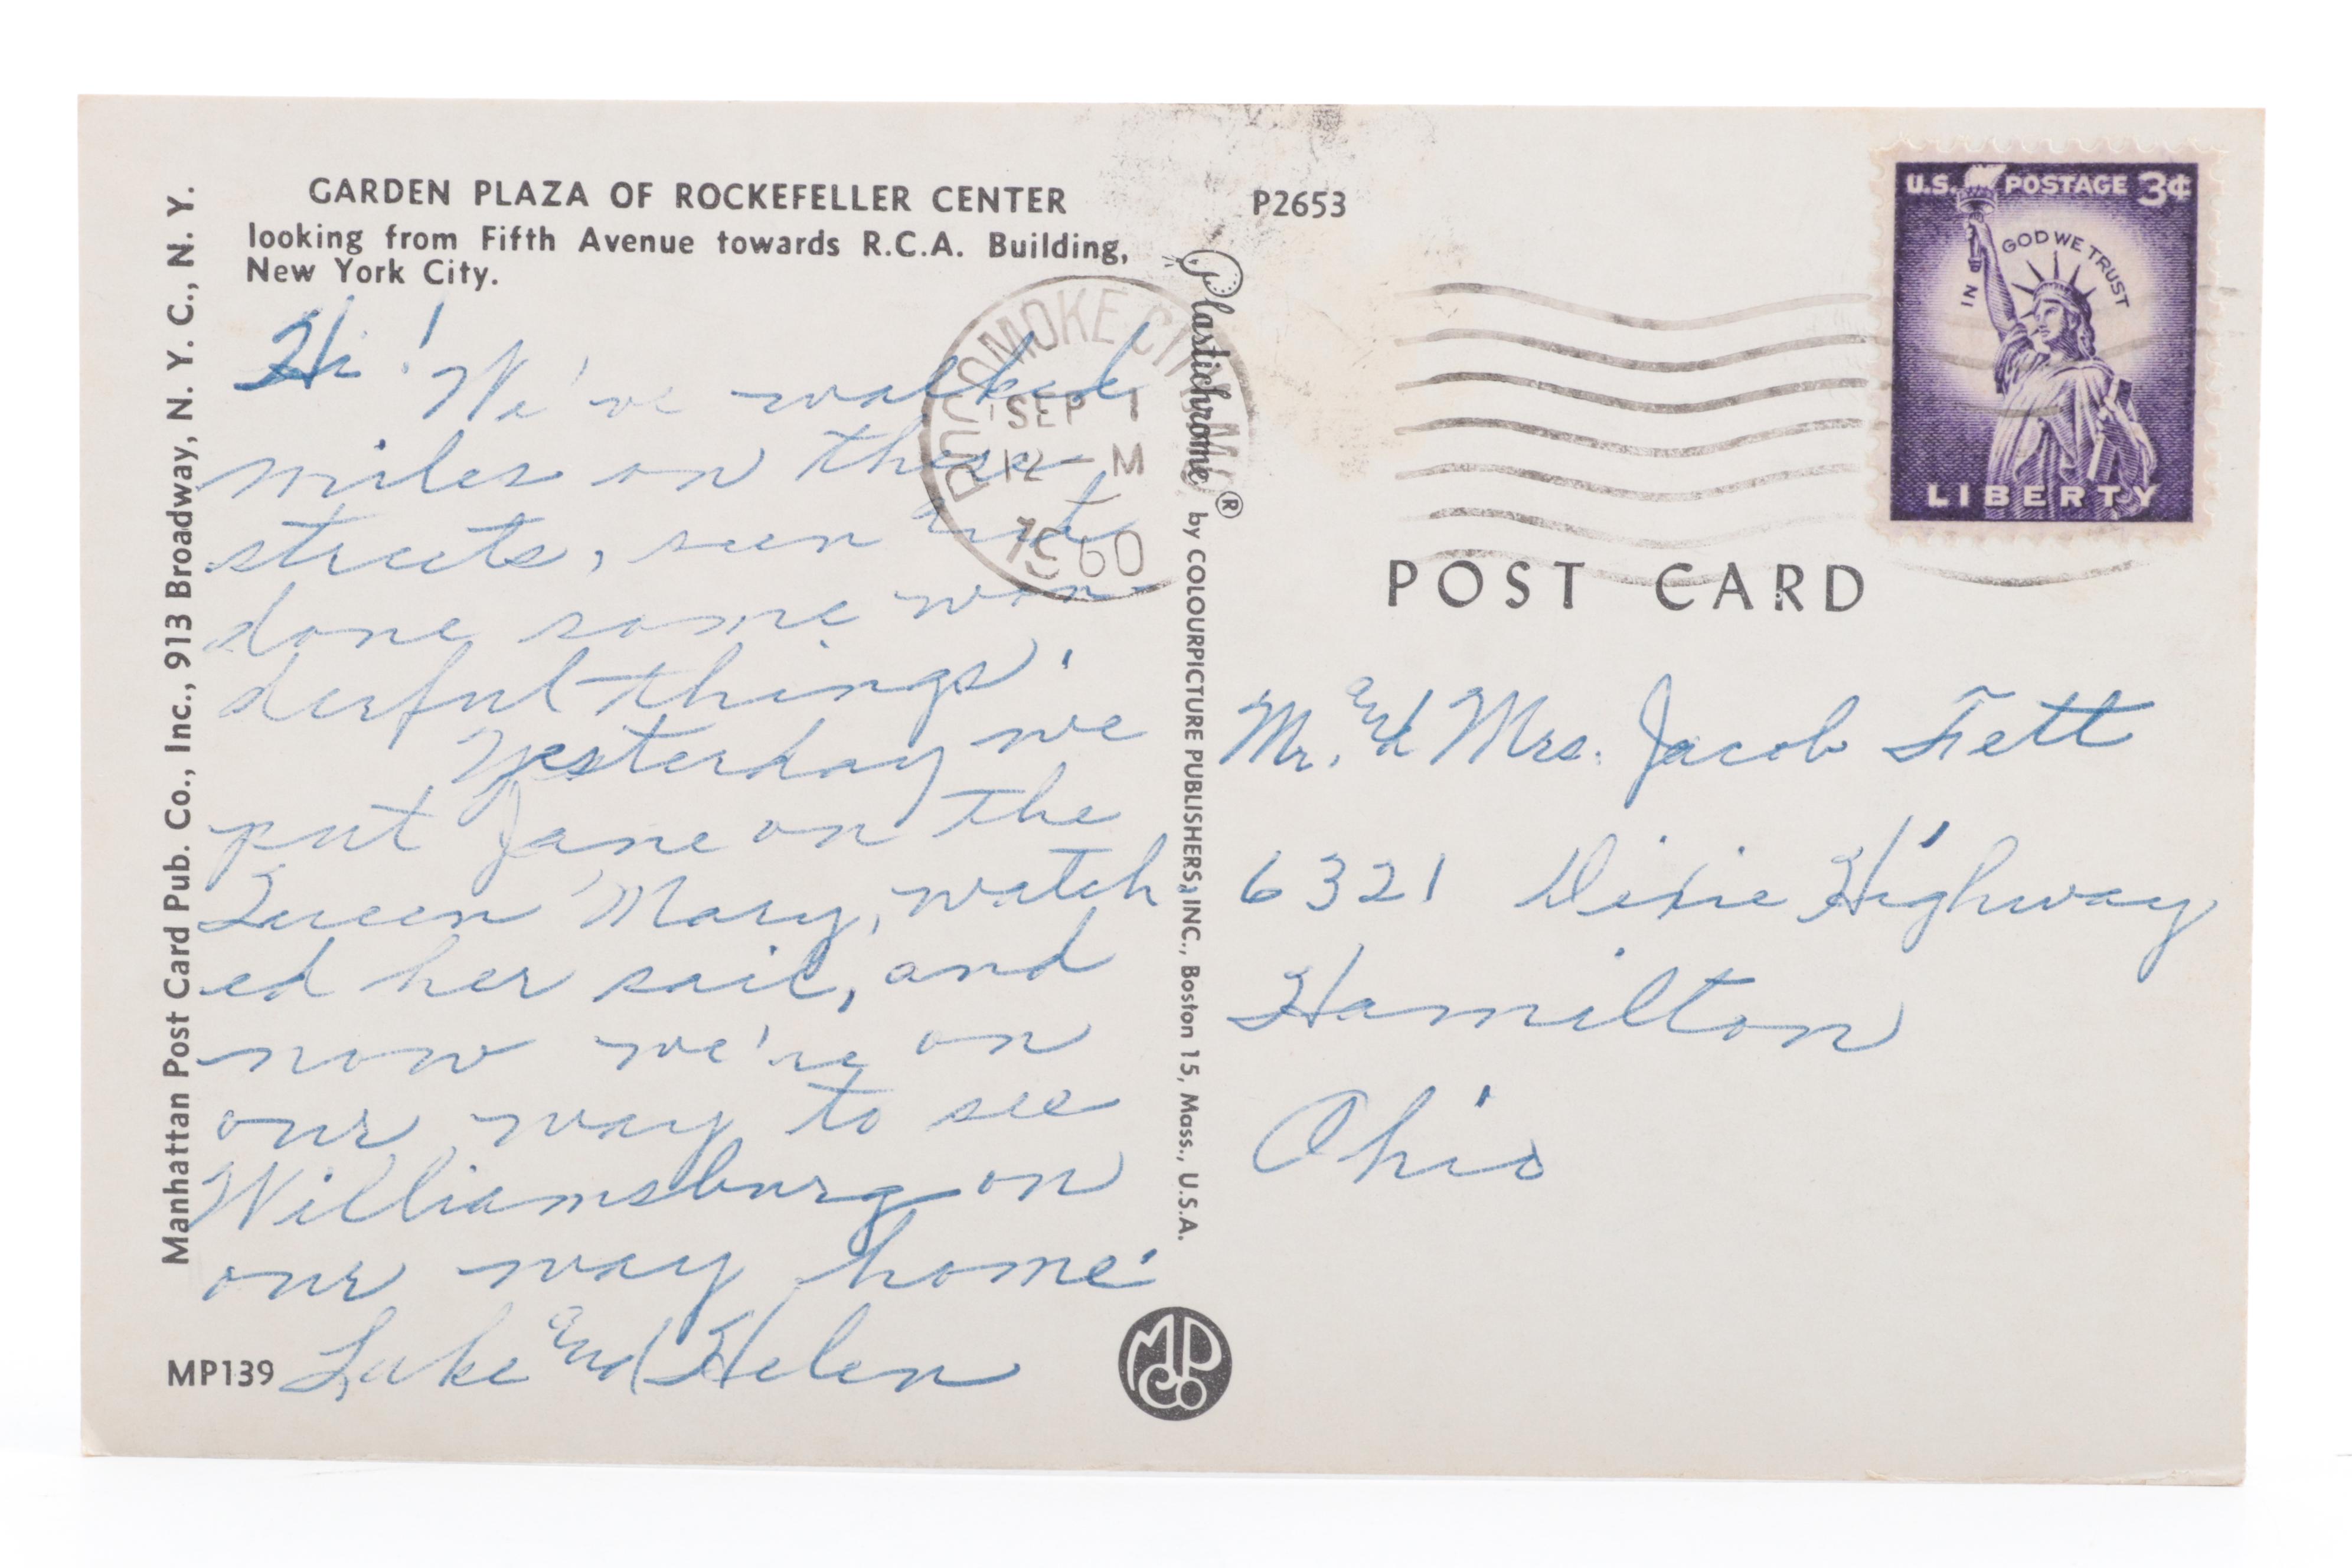 GARDEN PLAZA OF ROCKEFELLER CENTER
looking from Fifth Avenue towards R.C.A. Building,
New York City.
Hi! We've walked
miles on these
streets, seen and
done some won-
derful things.
Yesterday we
put Jane on the
Queen Mary, watch
ed her sail, and
now we're on
our way to see
Williamsburg on
our way home.
Luke and Helen
MP139
Manhattan Post Card Pub. Co., Inc., 913 Broadway, N. Y. C., N. Y.
POCOMOKE CITY
SEP 1
12 M
1960
Plastichrome ® by COLOURPICTURE PUBLISHERS, INC., Boston 15, Mass., U.S.A.
MPCo
P2653
U.S. POSTAGE 3¢
IN GOD WE TRUST
LIBERTY
POST CARD
Mr. and Mrs. Jacob Fett
6321 Dixie Highway
Hamilton
Ohio